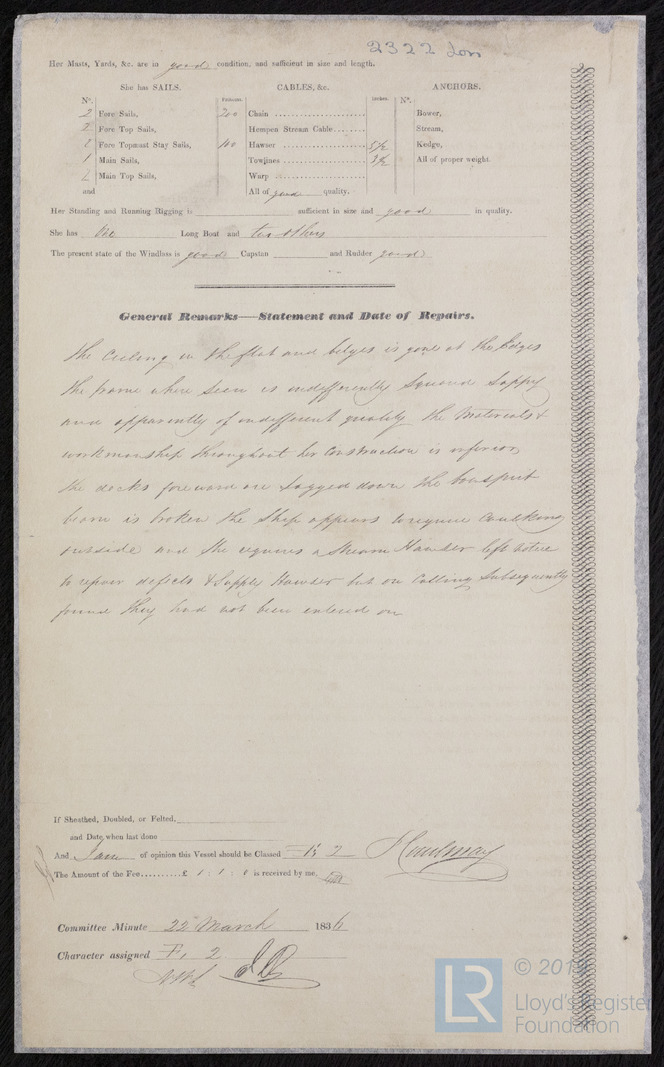 2322 Lon
Her Masts, Yards, &c. are in good condition, and sufficient in size and length.
She has SAILS. CABLES, &c. ANCHORS.
N°. Fathoms. Inches. N°.
2 Fore Sails, 200 Chain Bower,
2 Fore Top Sails, Hempen Stream Cable Stream,
2 Fore Topmast Stay Sails, 100 Hawser 5½ Kedge,
1 Main Sails, Towlines 3½ All of proper weight.
2 Main Top Sails, Warp
and All of good quality.
Her Standing and Running Rigging is sufficient in size and good in quality.
She has One Long Boat and two others
The present state of the Windlass is good Capstan and Rudder good
General Remarks—Statement and Date of Repairs.
The Ceiling in the flat and bilges is gone at the Edges
the frame where seen is indifferently Squared Sappy
and apparently of indifferent quality the Materials &
workmanship throughout her Construction is inferior
the decks foreward are Sagged down the bowsprit
beam is broken the Ship appears to require Caulking
outside and She requires a Stream Hawser left notice
to repair defects & Supply Hawser but on Calling Subsequently
found they had not been entered on
If Sheathed, Doubled, or Felted,
and Date when last done
And I am of opinion this Vessel should be Classed 2
The Amount of the Fee £ 1 : 1 : 0 is received by me,
Committee Minute 22 March 1836
Character assigned 2
© 2019
LR
Lloyd's Register
Foundation